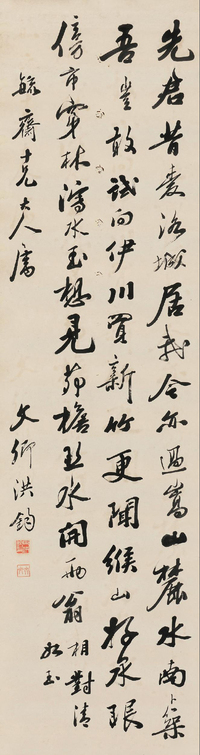 先君昔愛洛城居我今亦過嵩山麓水南卜築
吾豈敢試向伊川買新竹更聞緱山好泉眼
傍市穿林瀉冰玉想見茆檐照水開兩翁相對清如玉
毓齋十兄大人屬
文卿洪鈞